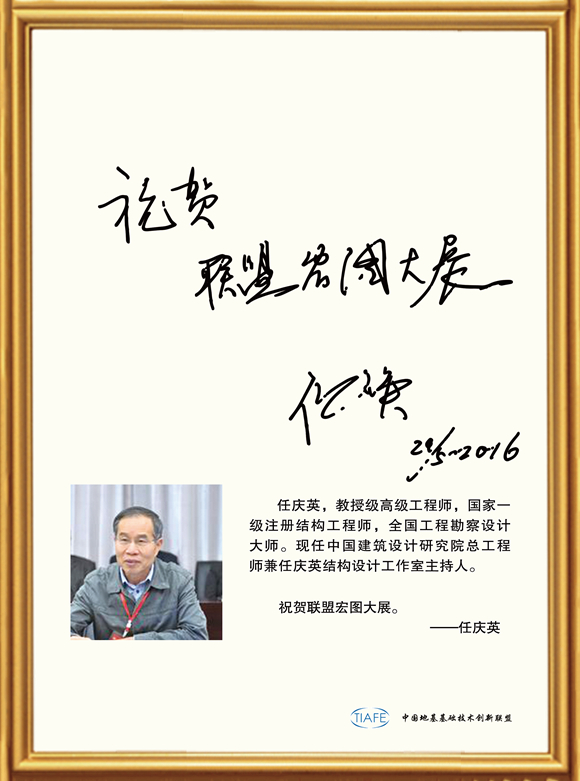 祝贺
联盟宏图大展
任庆英
29/5-2016
任庆英，教授级高级工程师，国家一
级注册结构工程师，全国工程勘察设计
大师。现任中国建筑设计研究院总工程
师兼任庆英结构设计工作室主持人。
祝贺联盟宏图大展。
——任庆英
TIAFE 中国地基基础技术创新联盟